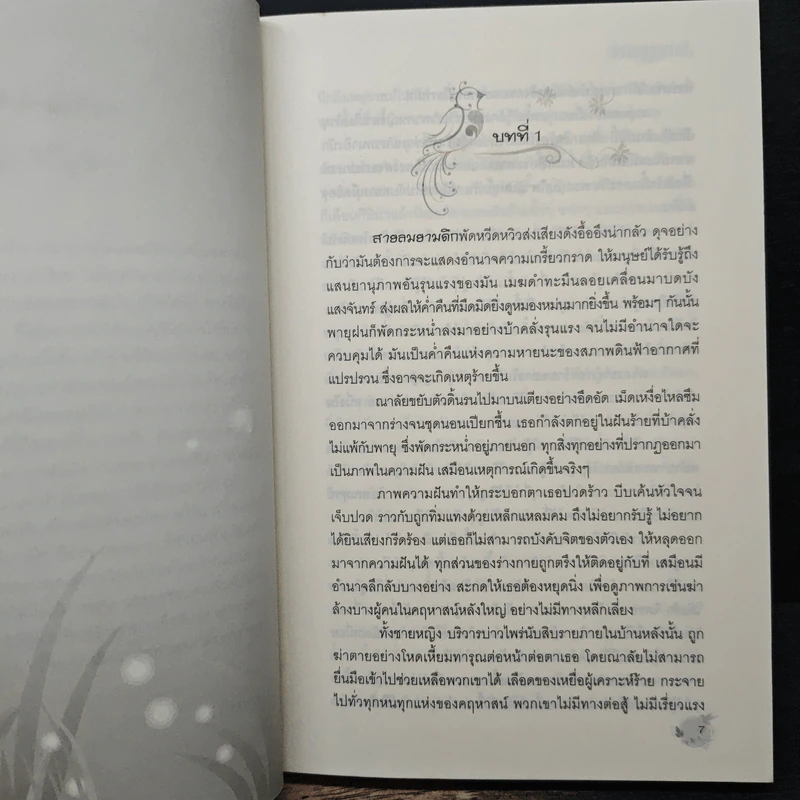 บทที่ 1
สายลมยามดึกพัดหวีดหวิวส่งเสียงดังอื้ออึงน่ากลัว ดุจอย่าง
กับว่ามันต้องการจะแสดงอำนาจความเกรี้ยวกราด ให้มนุษย์ได้รับรู้ถึง
แสนยานุภาพอันรุนแรงของมัน เมฆดำทะมึนลอยเคลื่อนมาบดบัง
แสงจันทร์ ส่งผลให้ค่ำคืนที่มืดมิดยิ่งดูหมองหม่นมากยิ่งขึ้น พร้อมๆ กันนั้น
พายุฝนก็พัดกระหน่ำลงมาอย่างบ้าคลั่งรุนแรง จนไม่มีอำนาจใดจะ
ควบคุมได้ มันเป็นค่ำคืนแห่งความหายนะของสภาพดินฟ้าอากาศที่
แปรปรวน ซึ่งอาจจะเกิดเหตุร้ายขึ้น
ณาลัยขยับตัวดิ้นรนไปมาบนเตียงอย่างอึดอัด เม็ดเหงื่อไหลซึม
ออกมาจากร่างจนชุดนอนเปียกชื้น เธอกำลังตกอยู่ในฝันร้ายที่บ้าคลั่ง
ไม่แพ้กับพายุ ซึ่งพัดกระหน่ำอยู่ภายนอก ทุกสิ่งทุกอย่างที่ปรากฏออกมา
เป็นภาพในความฝัน เสมือนเหตุการณ์เกิดขึ้นจริงๆ
ภาพความฝันทำให้กระบอกตาเธอปวดร้าว บีบเค้นหัวใจจน
เจ็บปวด ราวกับถูกทิ่มแทงด้วยเหล็กแหลมคม ถึงไม่อยากรับรู้ ไม่อยาก
ได้ยินเสียงกรีดร้อง แต่เธอก็ไม่สามารถบังคับจิตของตัวเอง ให้หลุดออก
มาจากความฝันได้ ทุกส่วนของร่างกายถูกตรึงให้ติดอยู่กับที่ เสมือนมี
อำนาจลึกลับบางอย่าง สะกดให้เธอต้องหยุดนิ่ง เพื่อดูภาพการเข่นฆ่า
ล้างบางผู้คนในคฤหาสน์หลังใหญ่ อย่างไม่มีทางหลีกเลี่ยง
ทั้งชายหญิง บริวารบ่าวไพร่นับสิบรายภายในบ้านหลังนั้น ถูก
ฆ่าตายอย่างโหดเหี้ยมทารุณต่อหน้าต่อตาเธอ โดยณาลัยไม่สามารถ
ยื่นมือเข้าไปช่วยเหลือพวกเขาได้ เลือดของเหยื่อผู้เคราะห์ร้าย กระจาย
ไปทั่วทุกหนทุกแห่งของคฤหาสน์ พวกเขาไม่มีทางต่อสู้ ไม่มีเรี่ยวแรง
7